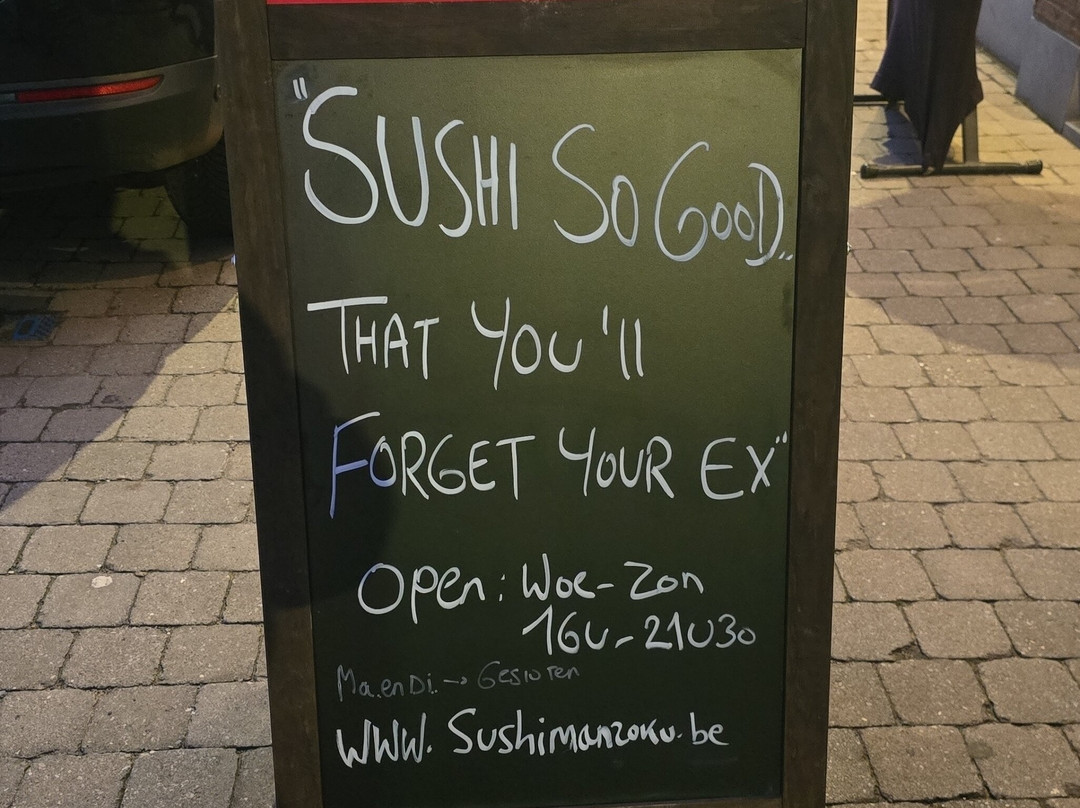 "SUSHI SO GOOD..
THAT YOU'll
FORGET YOUR EX"
Open: Woe-Zon
16U-21U30
Ma.enDi. → Gesloten
WWW.Sushimanzoku.be